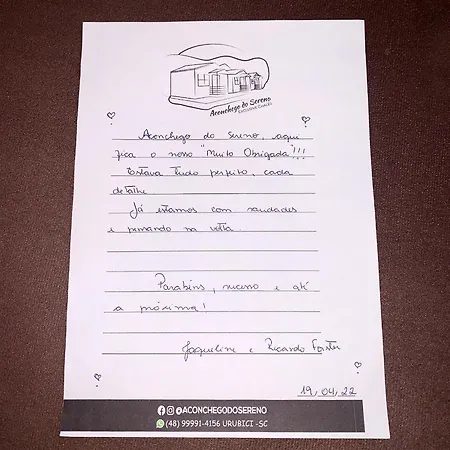 Aconchego do Sereno
Aconchego do Sereno, aqui
fica o nosso "Muito Obrigada"!!!
Estava tudo perfeito, cada
detalhe
Já estamos com saudades
e pensando na volta.
Parabéns, sucesso e até
a próxima!
Jaqueline e Ricardo Forster
19,04,22
@ACONCHEGODOSERENO
(48) 99991-4156 URUBICI -SC